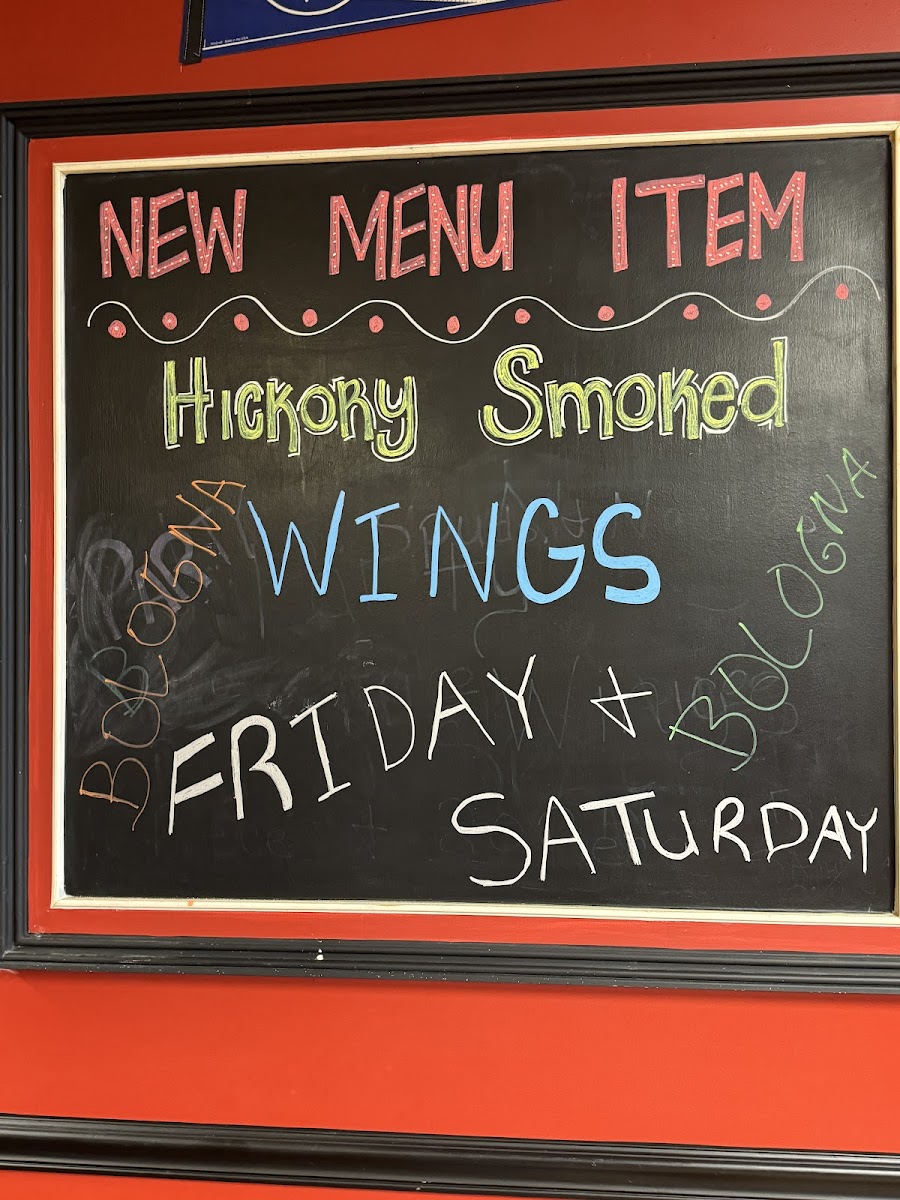 NEW MENU ITEM
Hickory Smoked
WINGS
BOLOGNA
BOLOGNA
FRIDAY +
SATURDAY